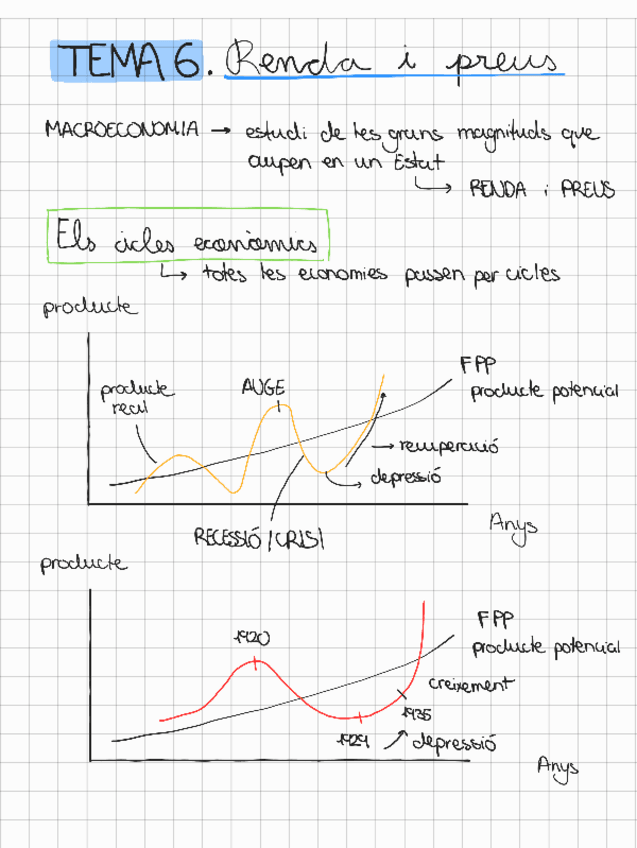 TEMA 6. Renda i preus
MACROECONOMIA → estudi de les grans magnituds que
ocupen en un Estat
↳ RENDA i PREUS
Els cicles econòmics
↳ totes les economies passen per cicles
producte
FPP
producte potencial
producte
real
AUGE
→ recuperació
depressió
RECESSIÓ / CRISI
Anys
producte
1920
FPP
producte potencial
creixement
1935
1929
depressió
Anys